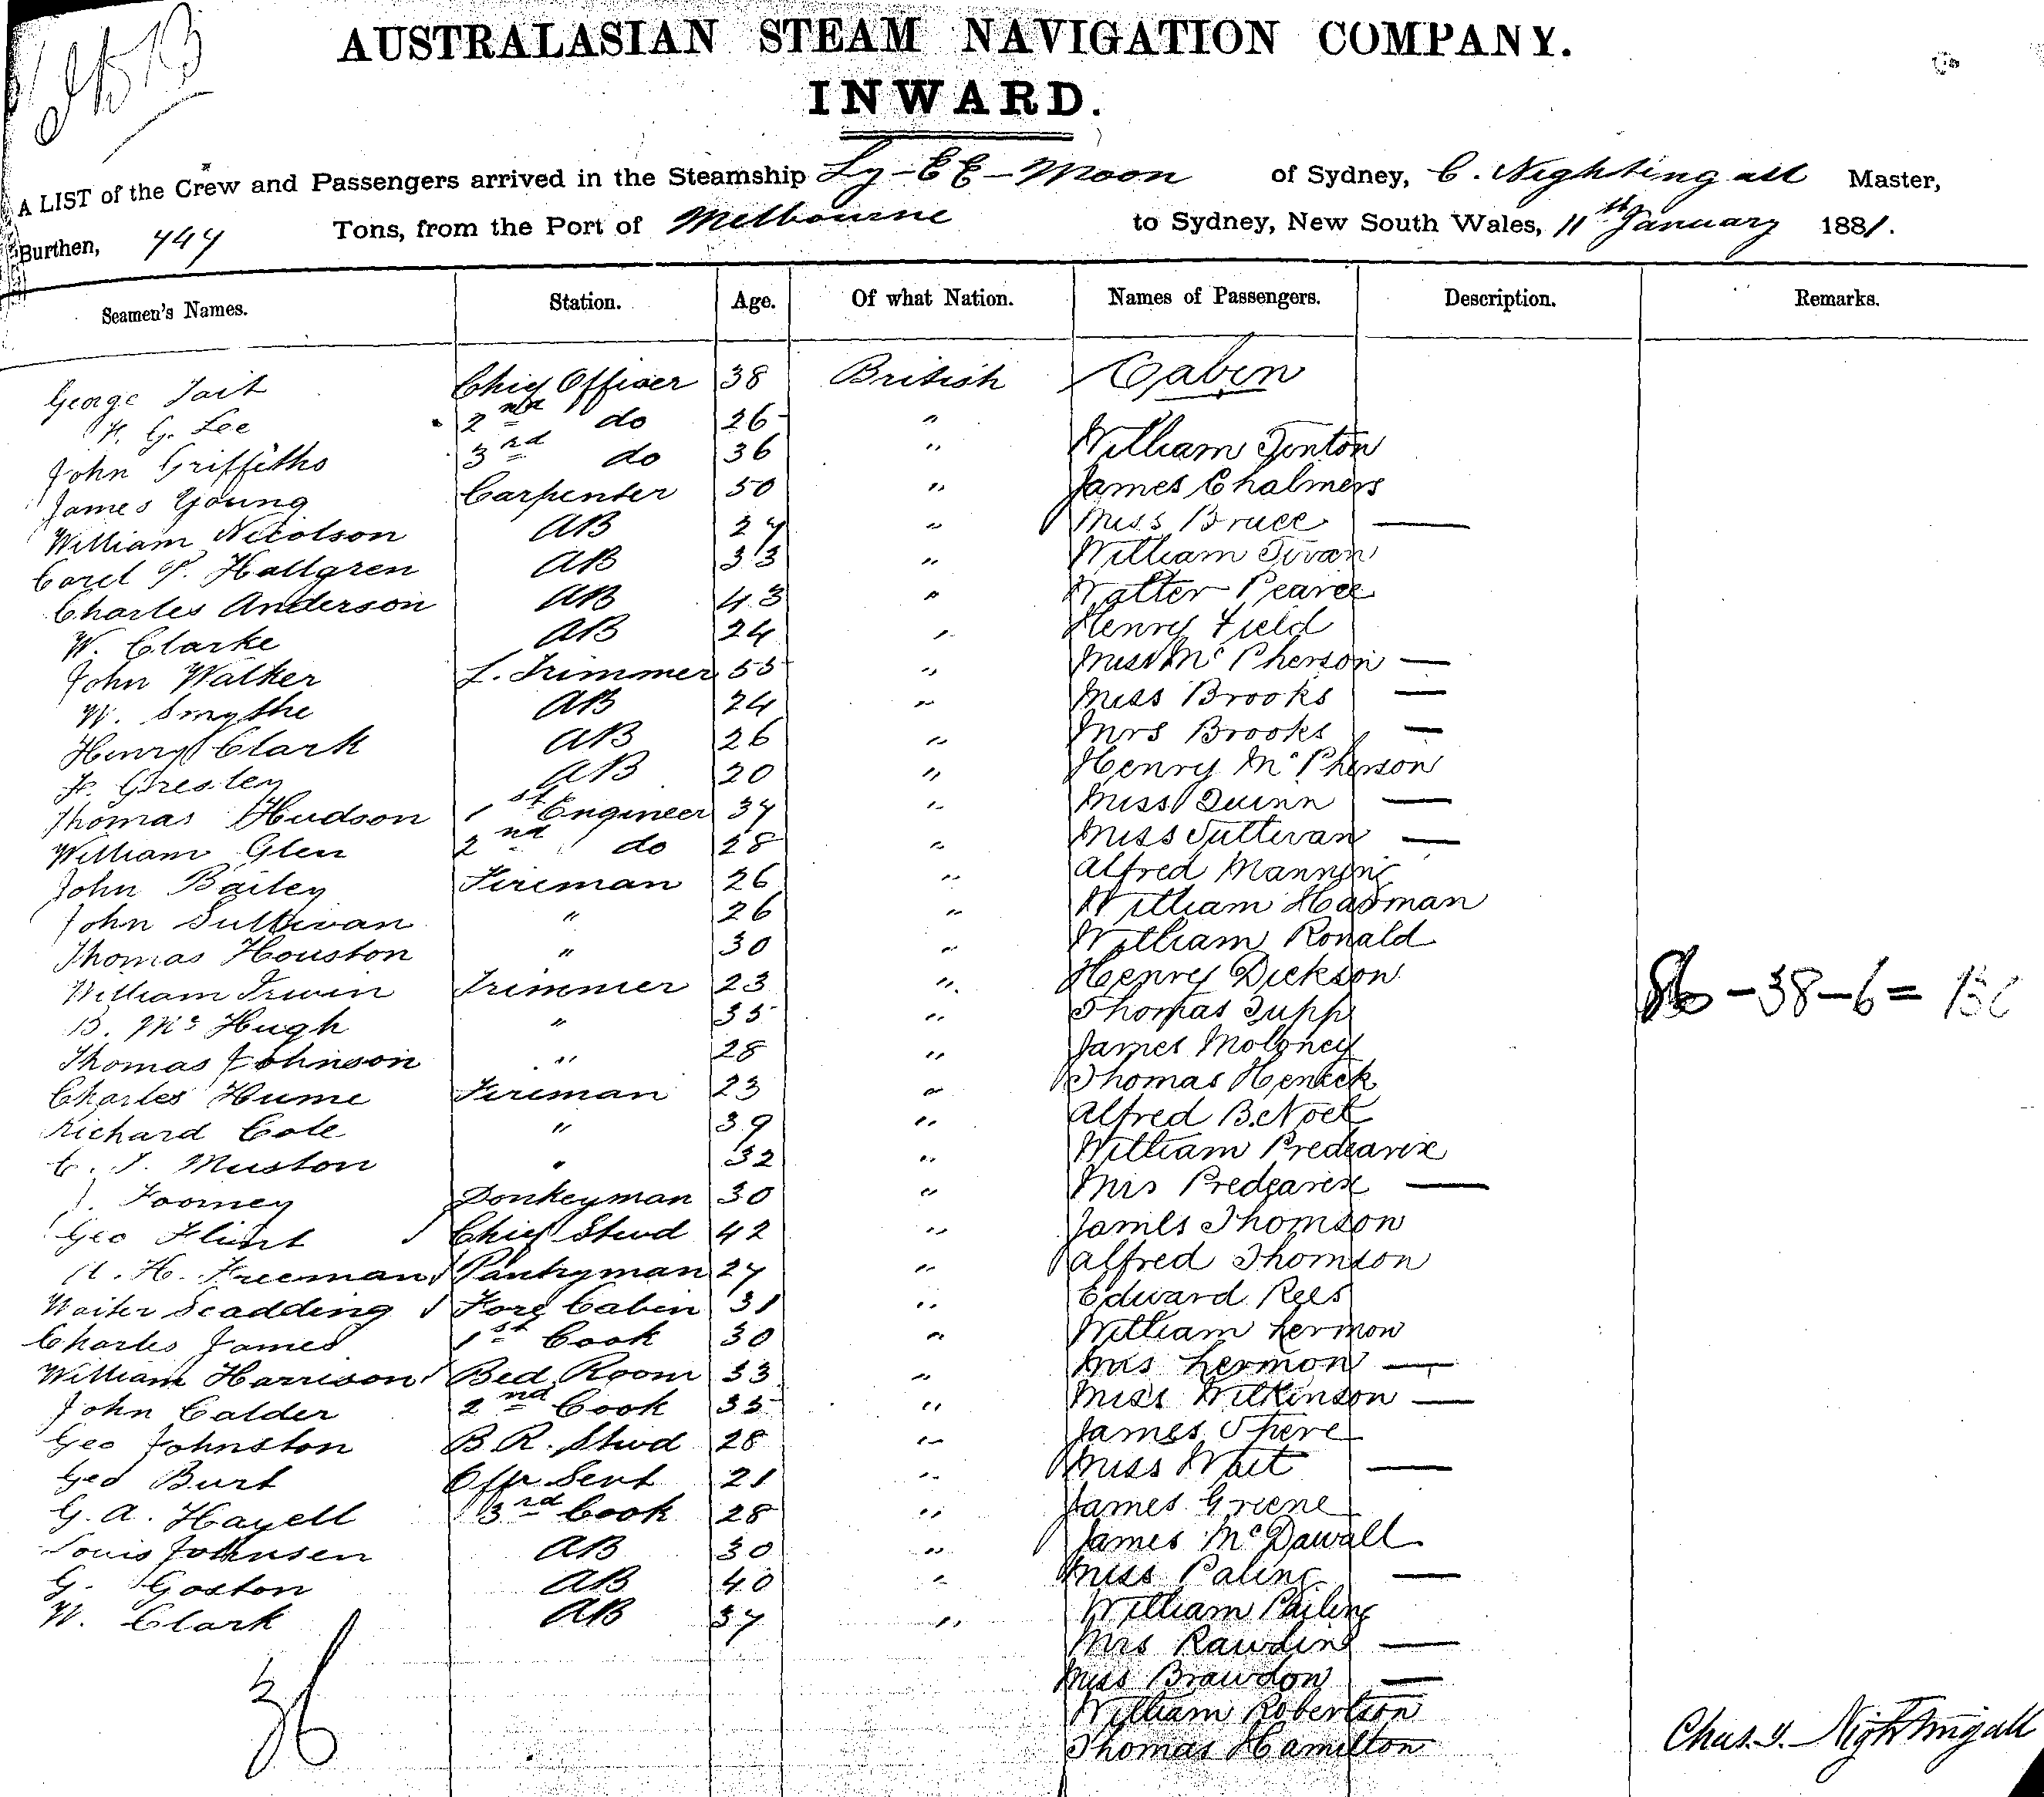 AUSTRALASIAN STEAM NAVIGATION COMPANY.
INWARD.
A LIST of the Crew and Passengers arrived in the Steamship Ly-EE-Moon of Sydney, C. Nightingall Master,
Burthen, 747 Tons, from the Port of Melbourne to Sydney, New South Wales, 11th January 1881.
Seamen's Names. Station. Age. Of what Nation. Names of Passengers. Description. Remarks.
George Tait Chief Officer 38 British Cabin
G. Lee 2nd do 26 "
John Griffiths 3rd do 36 " William Tinton
James Young Carpenter 50 " James Chalmers
William Nicolson AB 27 " Miss Bruce —
Carel P. Hallgren AB 33 " William Tivan
Charles Anderson AB 43 " Walter Pearce
W. Clarke AB 24 " Henry Field
John Walker L. Trimmer 55 " Miss Mc Pherson —
W. Smythe AB 24 " Miss Brooks —
Henry Clark AB 26 " Mrs Brooks —
F. Gresley AB 20 " Henry Mc Pherson
Thomas Hudson 1st Engineer 37 " Miss Quinn —
William Glen 2nd do 28 " Miss Sullivan —
John Bailey Fireman 26 " Alfred Manning
John Sullivan " 26 " William Hagman
Thomas Houston " 30 " William Ronald
William Irwin Trimmer 23 " Henry Dickson
B. Mc Hugh " 35 " Thomas Tupp 86 - 38 - 6 = 130
Thomas Johnson " 28 " James Moloney
Charles Hume Fireman 23 " Thomas
Richard Cole " 39 " Alfred B. Noel
C. J. Muston " 32 " William Predgarix
J. Toomey Donkeyman 30 " Mrs Predgarix —
Geo Flint Chief Stwd 42 " James Thomson
H. Freeman Pantryman 27 " Alfred Thomson
Walter Scadding Fore Cabin 31 " Edward Rees
Charles James 1st Cook 30 " William Lermon
William Harrison Bed Room 33 " Mrs Lermon —
John Calder 2nd Cook 35 " Miss Wilkinson —
Geo Johnston B R. Stwd 28 " James Spere
Geo Burt Offr Servt 21 " Miss Wait —
G. A. Hayell 3rd Cook 28 " James Greene
Louis Johnsen AB 30 " James McDawall
G. Goston AB 40 " Miss Paling —
W. Clark AB 37 " William Pailing
Mrs Rawding —
Miss Brawdon —
36 William Robertson
Thomas Hamilton
Chas. J. Nightingall